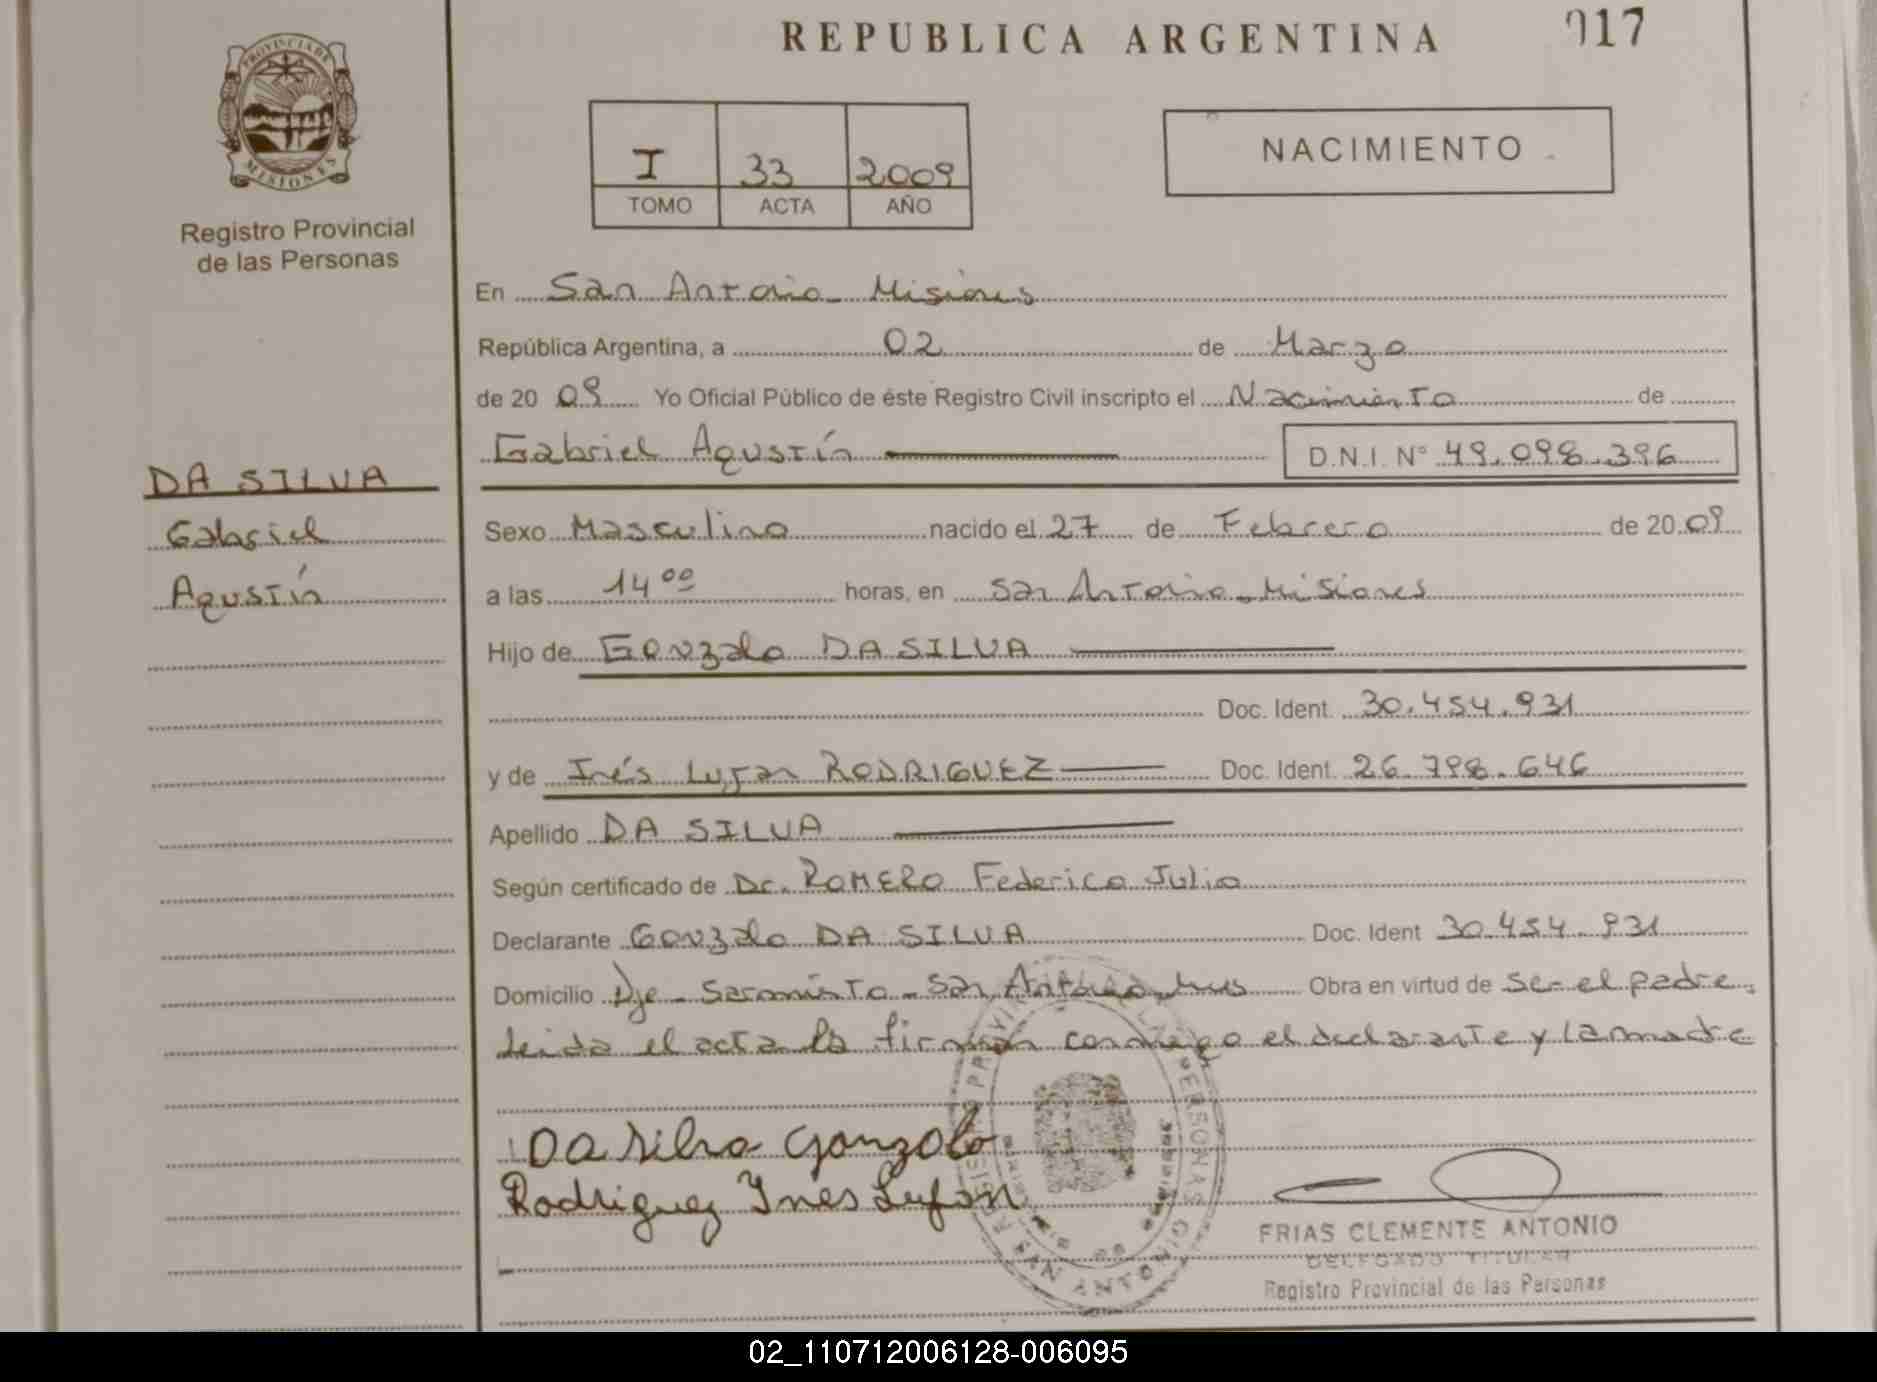 REPUBLICA ARGENTINA
017
PROVINCIA DE
MISIONES
Registro Provincial
de las Personas
I 33 2009
TOMO ACTA AÑO
NACIMIENTO
En San Antonio - Misiones
República Argentina, a 02 de Marzo
de 20 09 Yo Oficial Público de éste Registro Civil inscripto el Nacimiento de
Gabriel Agustín D.N.I. N° 49.098.396
DA SILVA
Gabriel
Agustín
Sexo Masculino nacido el 27 de Febrero de 20 09
a las 14 00 horas, en San Antonio - Misiones
Hijo de Gonzalo DA SILVA
Doc. Ident. 30.454.931
y de Inés Luján RODRIGUEZ Doc. Ident. 26.798.646
Apellido DA SILVA
Según certificado de Dr. ROMERO Federico Julio
Declarante Gonzalo DA SILVA Doc. Ident 30.454.931
Domicilio Dje - Sarmiento - San Antonio - Mnes Obra en virtud de ser el padre,
leida el acta la firman conmigo el declarante y la madre
Da Silva Gonzalo
Rodriguez Ines Lujan
SAN ANTONIO
FRIAS CLEMENTE ANTONIO
DELEGADO TITULAR
Registro Provincial de las Personas
02_110712006128-006095